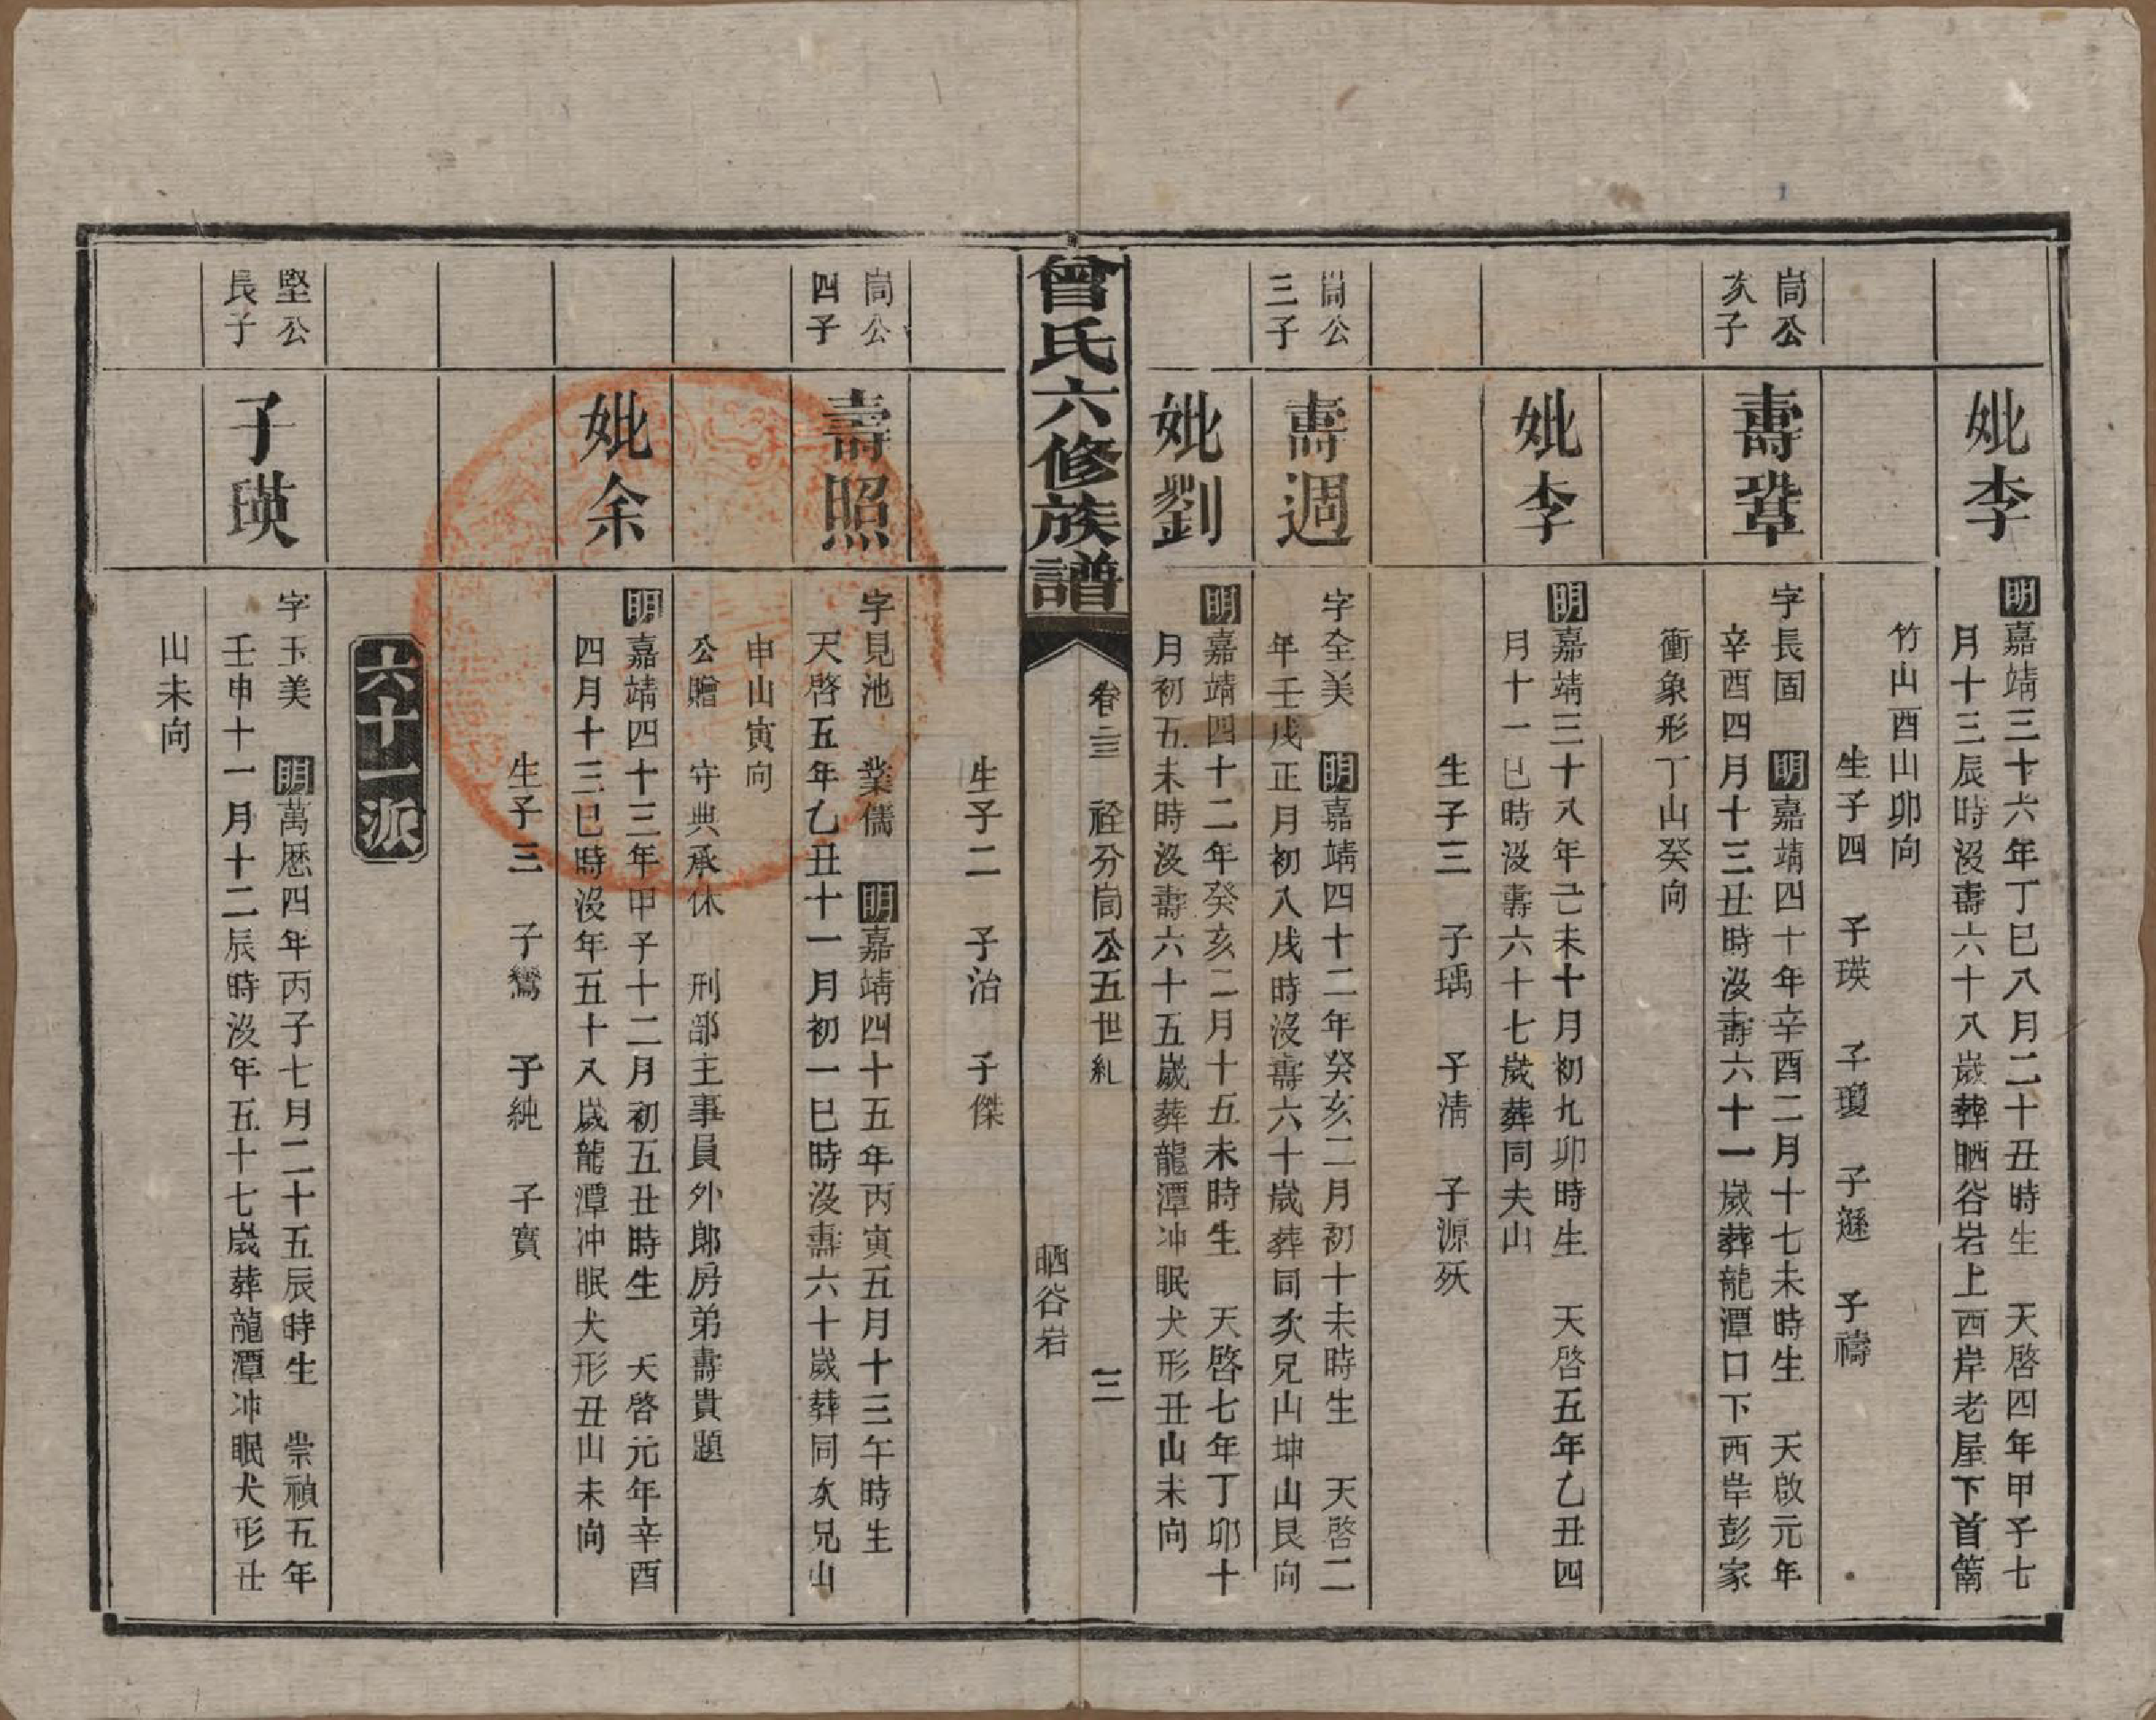 妣李
明嘉靖三十六年丁巳八月二十丑時生　天啓四年甲子七
月十三辰時沒壽六十八歲葬晒谷岩上西岸老屋下首菷
竹山酉山卯向
生子四　子瑛　子瓊　子遜　子禱
崗公
次子
壽鞏
字長固　明嘉靖四十年辛酉二月十七未時生　天啟元年
辛酉四月十三丑時沒壽六十一歲葬龍潭口下西岸彭家
衝象形丁山癸向
妣李
明嘉靖三十八年己未十月初九卯時生　天啓五年乙丑四
月十一巳時沒壽六十七歲葬同夫山
生子三　子瑀　子清　子源殀
崗公
三子
壽週
字全美　明嘉靖四十二年癸亥二月初十未時生　天啓二
年壬戌正月初八戌時沒壽六十歲葬同次兄山坤山艮向
妣劉
明嘉靖四十二年癸亥二月十五未時生　天啓七年丁卯十
月初五未時沒壽六十五歲葬龍潭冲眠犬形丑山未向
曾氏六修族譜
卷二三　詮分崗公五世糺
晒谷岩
三
生子二　子治　子傑
崗公
四子
壽照
字見池　業儒　明嘉靖四十五年丙寅五月十三午時生
天啓五年乙丑十一月初一巳時沒壽六十歲葬同次兄山
申山寅向
公贈　守典承休　刑部主事員外郎房弟壽貴題
妣余
明嘉靖四十三年甲子十二月初五丑時生　天啓元年辛酉
四月十三巳時沒年五十八歲龍潭冲眠犬形丑山未向
生子三　子鸞　子純　子實
六十一派
堅公
長子
子瑛
字玉美　明萬厯四年丙子七月二十五辰時生　崇禎五年
壬申十一月十二辰時沒年五十七歲葬龍潭冲眠犬形丑
山未向